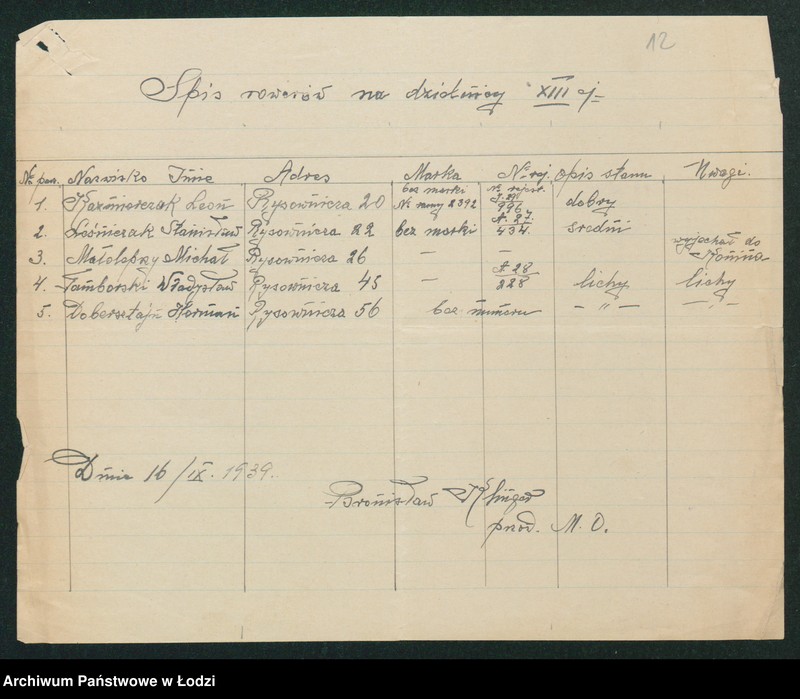 12
Spis rowerów na dzielnicy XIII ej
№ por. Nazwisko Imie Adres Marka № rej. opis stanu Uwagi.
1. Kaźmierczak Leon Rysownicza 20 bez marki № ramy 2392 № rejest. 996 dobry
2. Leśniczak Stanisław Rysownicza 22 bez marki A. 27. 434. średni
3. Michał Rysownicza 26 — — wyjechał do Konina
4. Tamborski Władysław Rysownicza 45 — A 28 228 lichy lichy
5. Dobersztajn Herman Rysownicza 56 bez numeru — „ — — „ —
Dnia 16/IX. 1939.
Bronisław
przod. M. O.
Archiwum Państwowe w Łodzi